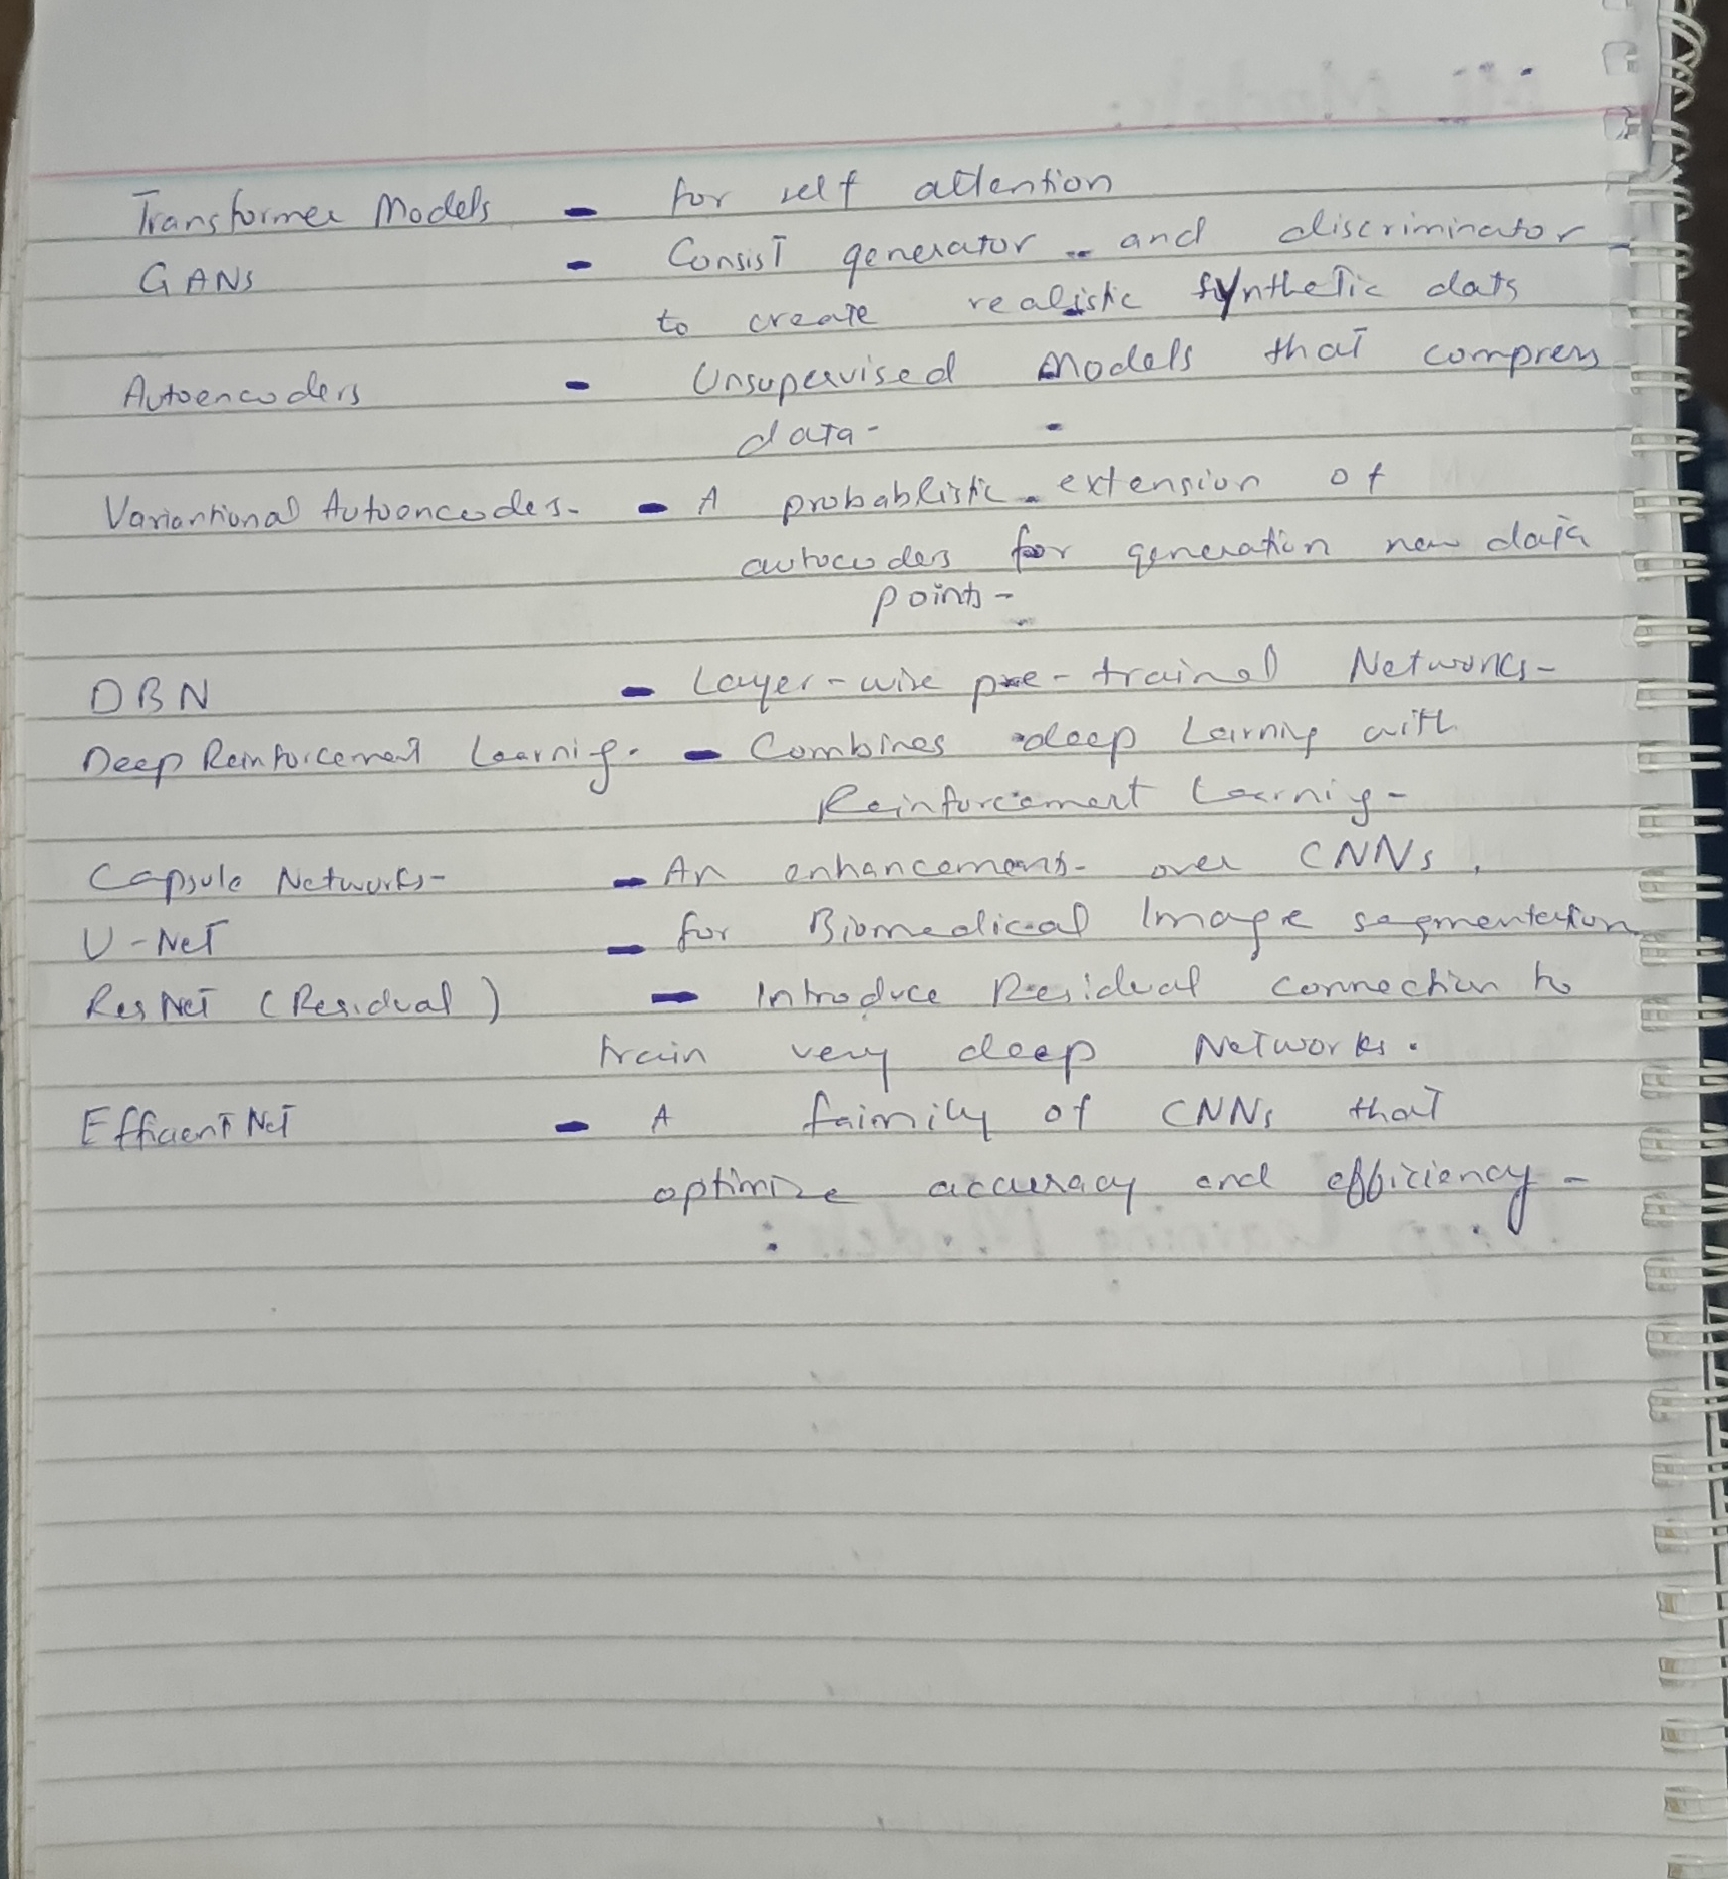 Transformer Models - for self attention
GANs - Consist generator and discriminator
to create realistic synthetic data
Autoencoders - Unsupervised Models that compress
data-
Variantional Autoencodes- - A probablistic extension of
autocoders for generation new data
points-
DBN - Layer-wise pre-trained Networks-
Deep Reinforcement Learning. - Combines deep Learning with
Reinforcement Learning-
Capsule Networks- - An enhancement- over CNNs,
U-Net - for Biomedical Image segmentation
ResNet (Residual) - Introduce Residual connection to
train very deep Networks.
EfficientNet - A faimily of CNNs that
optimize accuracy and efficiency-